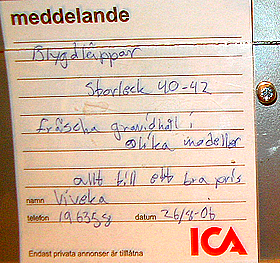 meddelande
Blygdläppar
Storleck 40-42
fräscha gravidhål i
olika modeller
allt till ett bra pris
namn Viveka
telefon 196358 datum 26/8-06
ICA
Endast privata annonser är tillåtna